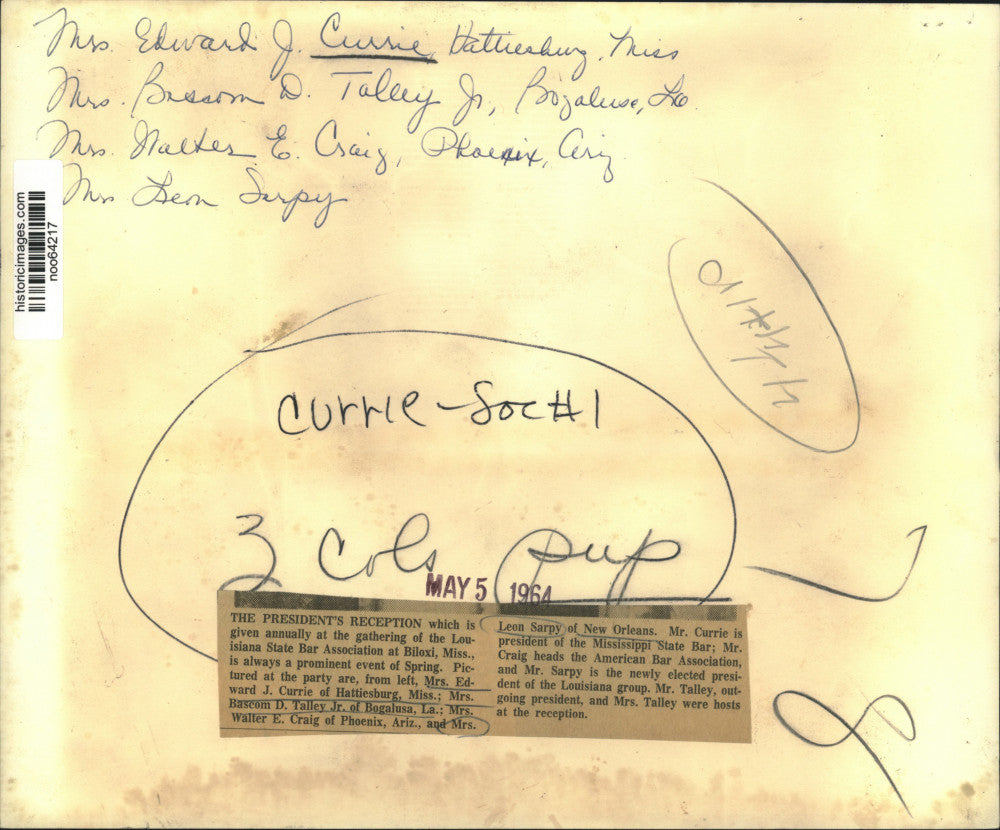 Mrs. Edward J. Currie, Hattiesburg, Miss
Mrs. Bascom D. Talley Jr., Bogalusa, La.
Mrs. Walter E. Craig, Phoenix, Ariz.
Mrs Leon Sarpy
historicimages.com
noo64217
currie - Soc #1
3 cols pup
MAY 5 1964
THE PRESIDENT'S RECEPTION which is
given annually at the gathering of the Lou-
isiana State Bar Association at Biloxi, Miss.,
is always a prominent event of Spring. Pic-
tured at the party are, from left, Mrs. Ed-
ward J. Currie of Hattiesburg, Miss.; Mrs.
Bascom D. Talley Jr. of Bogalusa, La.; Mrs.
Walter E. Craig of Phoenix, Ariz., and Mrs.
Leon Sarpy of New Orleans. Mr. Currie is
president of the Mississippi State Bar; Mr.
Craig heads the American Bar Association,
and Mr. Sarpy is the newly elected presi-
dent of the Louisiana group. Mr. Talley, out-
going president, and Mrs. Talley were hosts
at the reception.